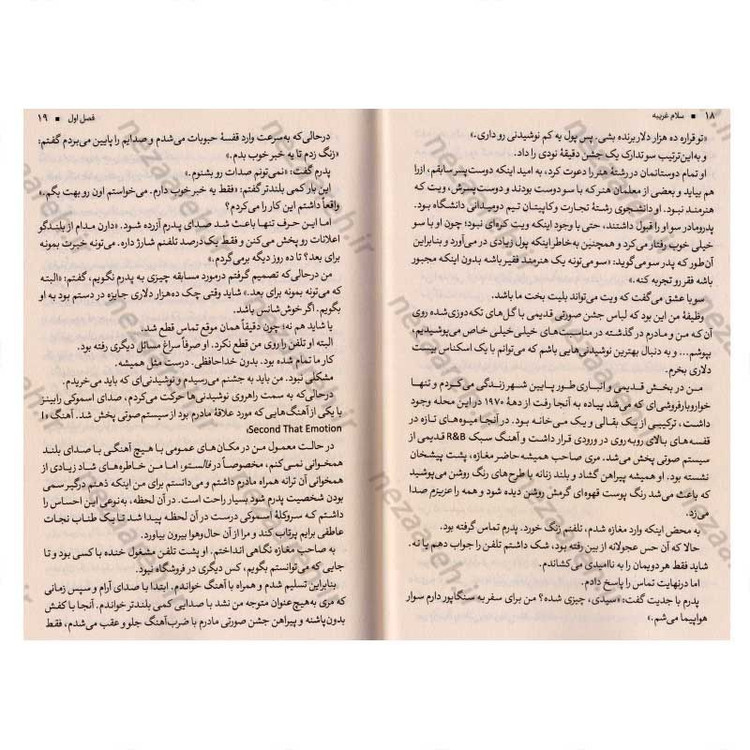 ۱۸ ■ سلام غریبه
«تو قراره ده هزار دلار برنده بشی. پس پول یه کم نوشیدنی رو داری.»
و به‌این‌ترتیب سو تدارک یک جشن دقیقهٔ نودی را داد.
او تمام دوستانمان در رشتهٔ هنر را دعوت کرد، به امید اینکه دوست‌پسر سابقم، ازرا
هم بیاید و بعضی از معلمان هنر که با سو دوست بودند و دوست‌پسرش، ویت که
هنرمند نبود. او دانشجوی رشتهٔ تجارت و کاپیتان تیم دومیدانی دانشگاه بود.
پدرومادر سو او را قبول داشتند، حتی با وجود اینکه ویت کره‌ای نبود؛ چون او با سو
خیلی خوب رفتار می‌کرد و همچنین به‌خاطر اینکه پول زیادی در می‌آورد و بنابراین
آن‌طور که پدر سو می‌گوید: «سو می‌تونه یک هنرمند فقیر باشه بدون اینکه مجبور
باشه فقر رو تجربه کنه.»
سو با عشق می‌گفت که ویت می‌تواند بلیت بخت ما باشد.
وظیفهٔ من این بود که لباس جشن صورتی قدیمی با گل‌های تکه‌دوزی‌شده روی
آن که من و مادرم در گذشته در مناسبت‌های خیلی‌خیلی خاص می‌پوشیدیم،
بپوشم... و به دنبال بهترین نوشیدنی‌هایی باشم که می‌توانم با یک اسکناس بیست
دلاری بخرم.
من در بخش قدیمی و انباری طور پایین شهر زندگی می‌کردم و تنها
خواروبارفروشی‌ای که می‌شد پیاده به آنجا رفت از دههٔ ۱۹۷۰ در این محله وجود
داشت، ترکیبی از یک بقالی و یک می‌خانه بود. در آنجا میوه‌های تازه در
قفسه‌های بالای روبه‌روی در ورودی قرار داشت و آهنگ سبک R&B قدیمی از
سیستم صوتی پخش می‌شد. مری صاحب همیشه حاضر مغازه، پشت پیشخان
نشسته بود. او همیشه پیراهن گشاد و بلند زنانه با طرح‌های رنگ روشن می‌پوشید
که باعث می‌شد رنگ پوست قهوه‌ای گرمش روشن دیده شود و همه را عزیزم صدا
می‌زد.
به محض اینکه وارد مغازه شدم، تلفنم زنگ خورد. پدرم تماس گرفته بود.
حالا که آن حس عجولانه از بین رفته بود، شک داشتم تلفن را جواب دهم یا نه.
شاید فقط هر دویمان را به ناامیدی می‌کشاندم.
اما درنهایت تماس را پاسخ دادم.
پدرم با جدیت گفت: «سیدی، چیزی شده؟ من برای سفر به سنگاپور دارم سوار
هواپیما می‌شم.»
فصل اول ■ ۱۹
درحالی‌که به‌سرعت وارد قفسهٔ حبوبات می‌شدم و صدایم را پایین می‌بردم گفتم:
«زنگ زدم تا یه خبر خوب بدم.»
پدرم گفت: «نمی‌تونم صدات رو بشنوم.»
این بار کمی بلندتر گفتم: «فقط یه خبر خوب دارم. می‌خواستم اون رو بهت بگم.»
واقعاً داشتم این کار را می‌کردم؟
اما این حرف تنها باعث شد صدای پدرم آزرده شود. «دارن مدام از بلندگو
اعلانات رو پخش می‌کنن و فقط یک درصد تلفنم شارژ داره. می‌تونه خبرت بمونه
برای بعد؟ تا ده روز دیگه برمی‌گردم.»
من درحالی‌که تصمیم گرفتم درمورد مسابقه چیزی به پدرم نگویم، گفتم: «البته
که می‌تونه بمونه برای بعد.» شاید وقتی چک ده‌هزار دلاری جایزه در دستم بود به او
بگویم. اگر خوش‌شانس باشد.
یا شاید هم نه؛ چون دقیقاً همان موقع تماس قطع شد.
البته او تلفن را روی من قطع نکرد. او صرفاً سراغ مسائل دیگری رفته بود.
کار ما تمام شده بود. بدون خداحافظی. درست مثل همیشه.
مشکلی نبود. من باید به جشنم می‌رسیدم و نوشیدنی‌ای که باید می‌خریدم.
درحالی‌که به سمت راهروی نوشیدنی‌ها حرکت می‌کردم، صدای اسموکی رابینز
با یکی از آهنگ‌هایی که مورد علاقهٔ مادرم بود از سیستم صوتی پخش شد. آهنگ «I
Second That Emotion»
در حالت معمول من در مکان‌های عمومی با هیچ آهنگی با صدای بلند
همخوانی نمی‌کنم، مخصوصاً در فالستو، اما من خاطره‌های شاد زیادی از
همخوانی آن ترانه همراه مادرم داشتم و می‌دانستم برای من اینکه ذهنم درگیر سمی
بودن شخصیت پدرم شود بسیار راحت است. در آن لحظه، به‌نوعی این احساس را
داشتم که سروکلهٔ اسموکی درست در آن لحظه پیدا شد تا یک طناب نجات
عاطفی برایم پرتاب کند و مرا از آن حال‌وهوا بیرون بیاورد.
به صاحب مغازه نگاهی انداختم. او پشت تلفن مشغول خنده با کسی بود و تا
جایی که می‌توانستم بگویم، کس دیگری در فروشگاه نبود.
بنابراین تسلیم شدم و همراه با آهنگ خواندم، ابتدا با صدای آرام و سپس زمانی
که مری به‌هیچ‌عنوان متوجه من نشد با صدایی کمی بلندتر خواندم. آنجا با کفش
بدون‌پاشنه و پیراهن جشن صورتی مادرم با ضرب‌آهنگ جلو و عقب می‌شدم، فقط
nezaareh.ir